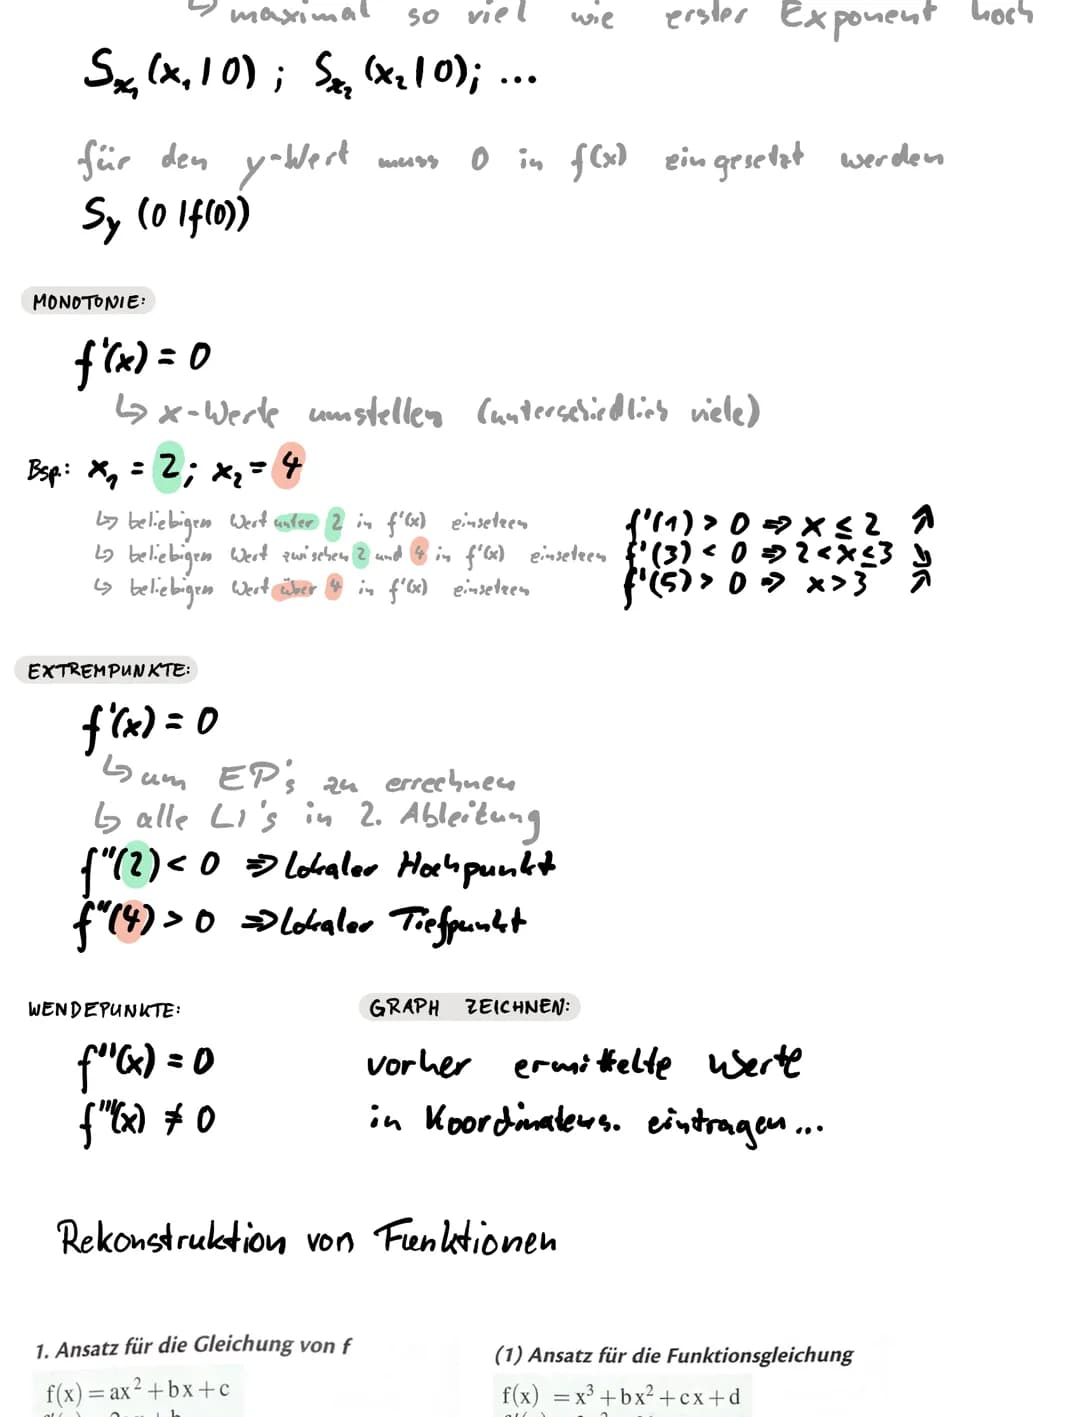 ↳ maximal so viel wie erster Exponent hoch
Sx₁ (x₁|0) ; Sx₂ (x₂|0); ...
für den y-Wert muss 0 in f(x) eingesetzt werden
Sy (0|f(0))
MONOTONIE:
f'(x) = 0
↳ x-Werte umstellen (unterschiedlich viele)
Bsp: x₁ = 2; x₂ = 4
↳ beliebigen Wert unter 2 in f'(x) einsetzen f'(1) > 0 ⇒ x ≤ 2 ↗
↳ beliebigen Wert zwischen 2 und 4 in f'(x) einsetzen f'(3) < 0 ⇒ 2 < x ≤ 3 ↘
↳ beliebigen Wert über 4 in f'(x) einsetzen f'(5) > 0 ⇒ x > 3 ↗
EXTREMPUNKTE:
f'(x) = 0
↳ um EP's zu errechnen
↳ alle L1's in 2. Ableitung
f''(2) < 0 ⇒ Lokaler Hochpunkt
f''(4) > 0 ⇒ Lokaler Tiefpunkt
WENDEPUNKTE:
f''(x) = 0
f'''(x) ≠ 0
GRAPH ZEICHNEN:
vorher ermittelte Werte
in Koordinatens. eintragen...
Rekonstruktion von Funktionen
1. Ansatz für die Gleichung von f
f(x) = ax² + bx + c
(1) Ansatz für die Funktionsgleichung
f(x) = x³ + bx² + cx + d